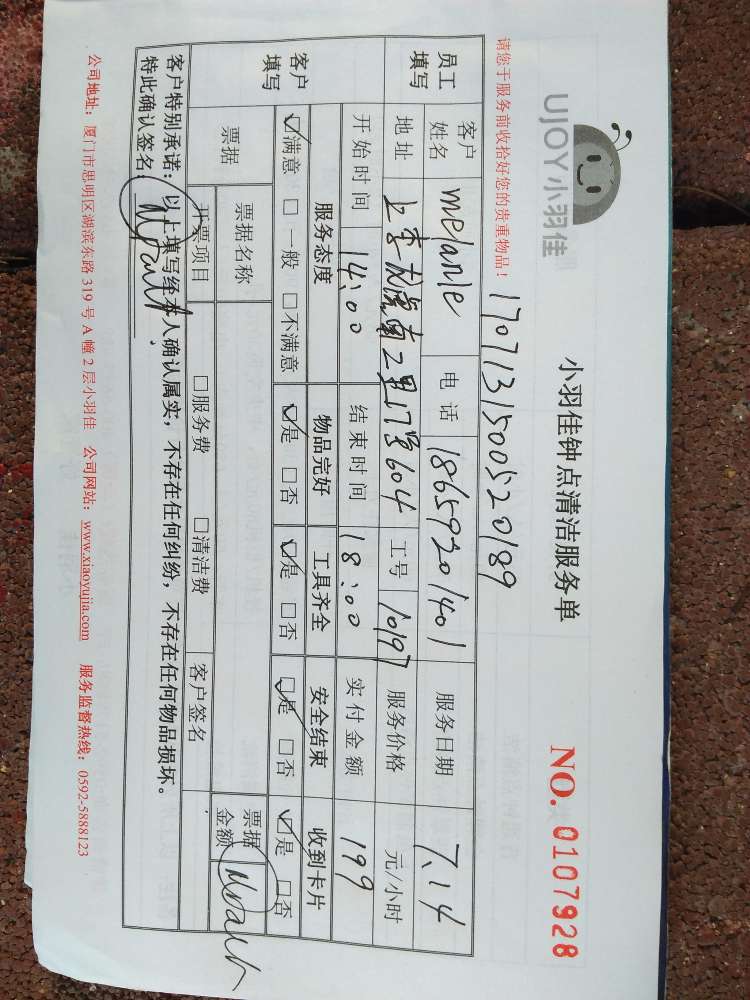 UJOY 小羽佳
小羽佳钟点清洁服务单
NO. 0107928
请您于服务前收拾好您的贵重物品！
170713150052 0189
员工填写 客户姓名 melanie 电话 18659201401 服务日期 7.14
地址 南二里17号604 工号 1097 服务价格 元/小时
开始时间 14:00 结束时间 18:00 实付金额 199
客户填写 服务态度 物品完好 工具齐全 安全结束 收到卡片
☑满意 □一般 □不满意 ☑是 □否 ☑是 □否 ☑是 □否 ☑是 □否
票据 票据名称 票据金额
开票项目 □服务费 □清洁费 客户签名
客户特别承诺：以上填写经本人确认属实，不存在任何纠纷，不存在任何物品损坏。
特此确认签名：
公司地址：厦门市思明区湖滨东路 319 号 A 幢 2 层小羽佳 公司网站：www.xiaoyujia.com 服务监督热线：0592-5888123